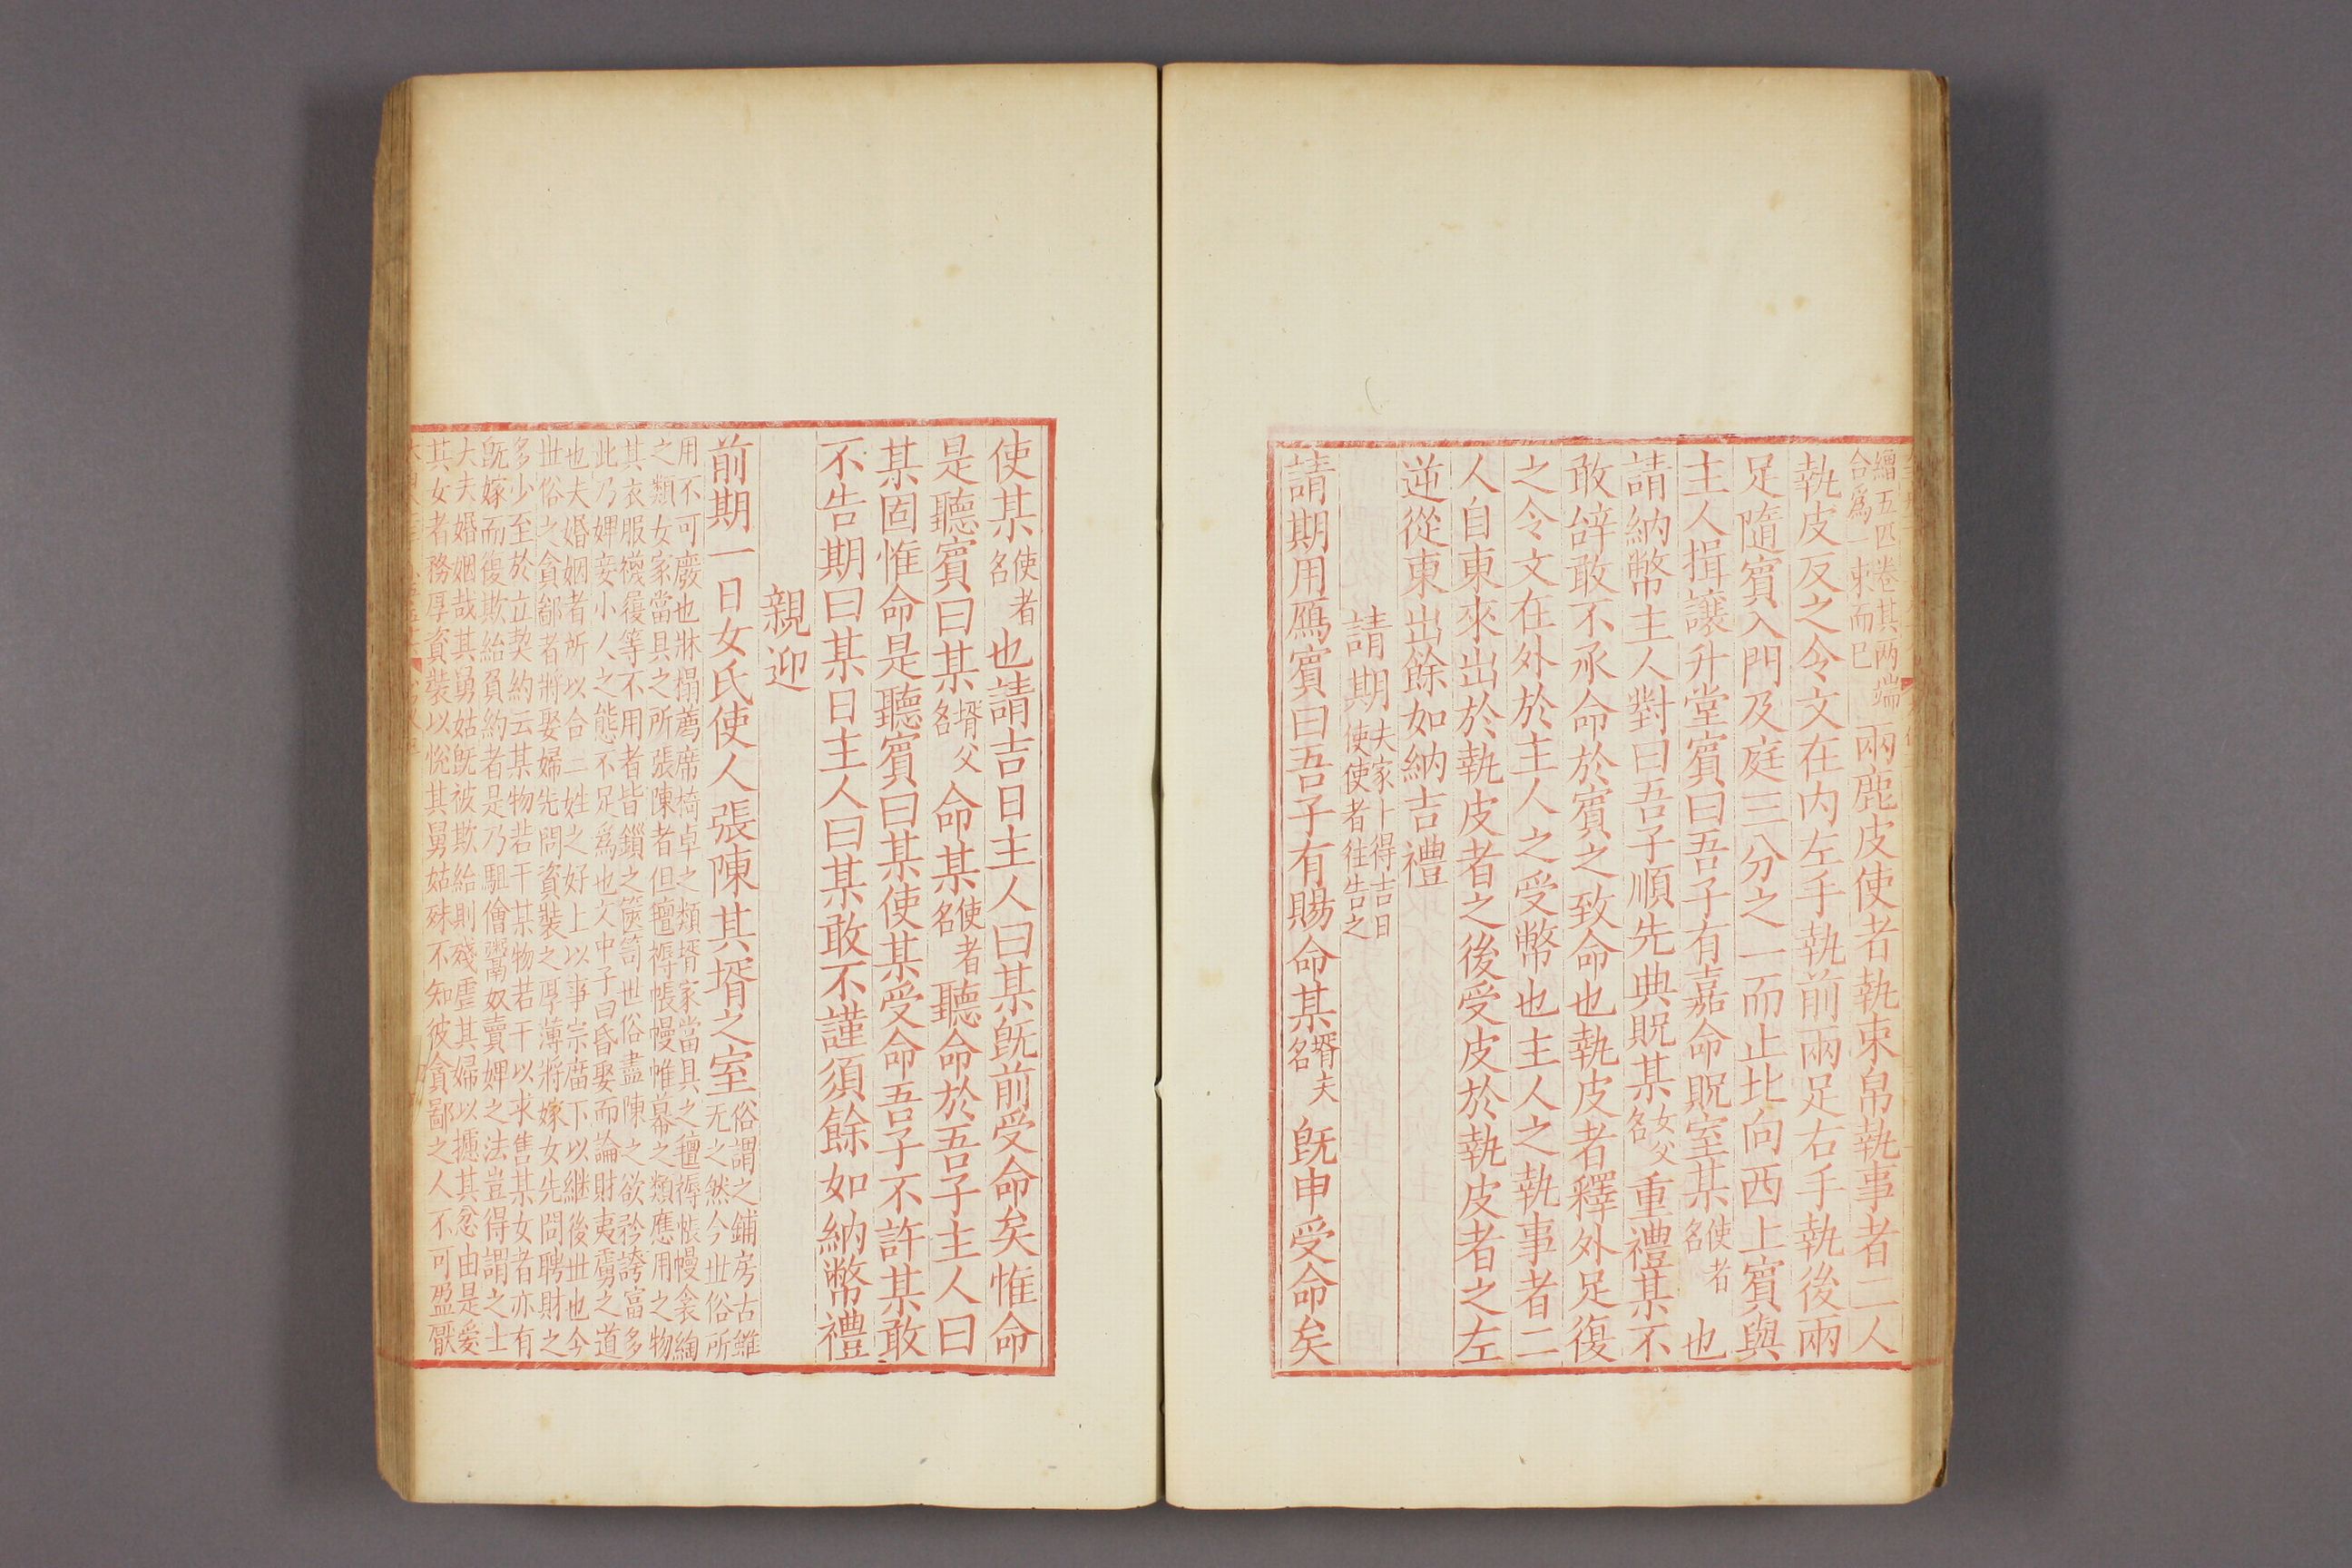 繒五匹卷其两端
合爲一束而已
兩鹿皮使者執束帛執事者二人
執皮反之令文在内左手執前兩足右手執後兩
足隨賓入門及庭三分之一而止北向西上賓與
主人揖讓升堂賓曰吾子有嘉命貺室某使者名也
請納幣主人對曰吾子順先典貺某女父名重禮某不
敢辝敢不承命於賓之致命也執皮者釋外足復
之令文在外於主人之受幣也主人之執事者二
人自東來出於執皮者之後受皮於執皮者之左
逆從東出餘如納吉禮
請期夫家卜得吉日使使者往告之
請期用鴈賓曰吾子有賜命某壻父名旣申受命矣
使某使者名也請吉日主人曰某旣前受命矣惟命
是聽賓曰某壻父名命某使者名聽命於吾子主人曰
某固惟命是聽賓曰某使某受命吾子不許某敢
不告期曰某日主人曰某敢不謹須餘如納幣禮
親迎
前期一日女氏使人張陳其壻之室
俗謂之鋪房古雖
无之然今世俗所
用不可廢也牀榻薦席椅卓之類壻家當具之氊褥帳幔衾綯
之類女家當具之所張陳者但氊褥帳幔帷幕之類應用之物
其衣服襪履等不用者皆鎖之篋笥世俗盡陳之欲矜誇富多
此乃婢妾小人之態不足爲也文中子曰昏娶而論財夷虜之道
也夫婚姻者所以合二姓之好上以事宗廟下以継後世也今
世俗之貪鄙者將娶婦先問資裝之厚薄將嫁女先問聘財之
多少至於立契約云某物若干某物若干以求售某女者亦有
旣嫁而復欺紿負約者是乃駔儈鬻奴賣婢之法豈得謂之士
大夫婚姻哉其舅姑旣被欺紿則殘虐其婦以攄其忿由是爱
其女者務厚資裝以悅其舅姑殊不知彼貪鄙之人不可盈厭